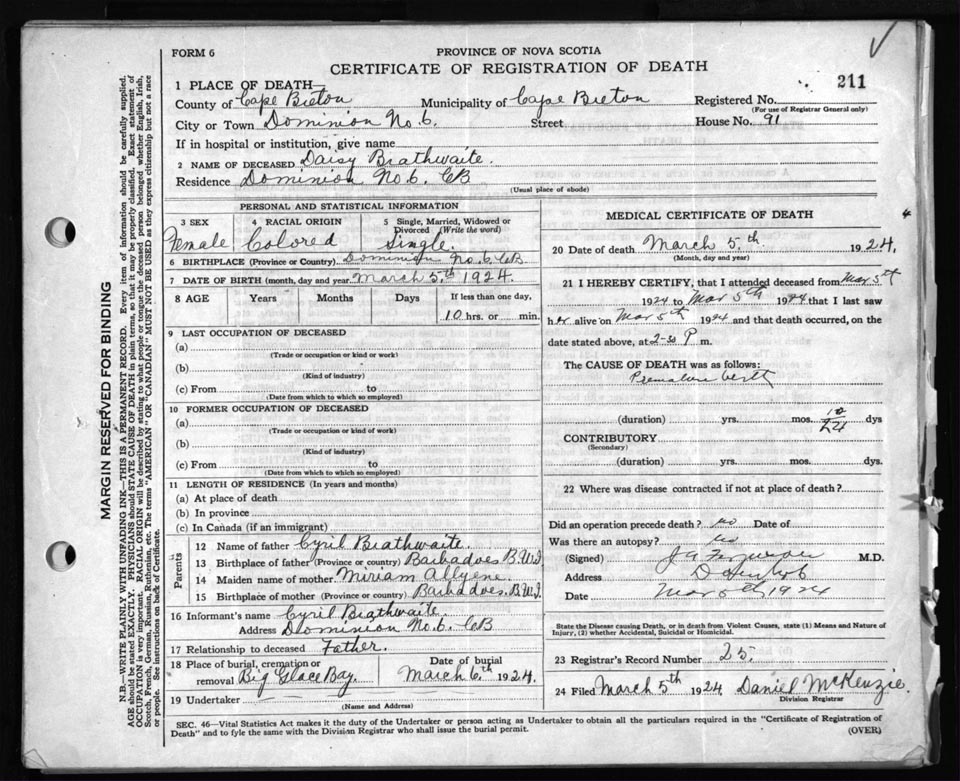 FORM 6
PROVINCE OF NOVA SCOTIA
CERTIFICATE OF REGISTRATION OF DEATH
211
1 PLACE OF DEATH
County of Cape Breton Municipality of Cape Breton Registered No.
(For use of Registrar General only)
City or Town Dominion No. 6. Street House No. 91
If in hospital or institution, give name
2 NAME OF DECEASED Daisy Brathwaite.
Residence Dominion No. 6. CB
(Usual place of abode)
PERSONAL AND STATISTICAL INFORMATION
3 SEX Female
4 RACIAL ORIGIN Colored
5 Single, Married, Widowed or Divorced (Write the word) Single.
6 BIRTHPLACE (Province or Country) Dominion No. 6. CB
7 DATE OF BIRTH (month, day and year) March 5th 1924.
8 AGE Years Months Days If less than one day,
10 hrs. or min.
9 LAST OCCUPATION OF DECEASED
(a)
(Trade or occupation or kind of work)
(b)
(Kind of industry)
(c) From to
(Date from which to which so employed)
10 FORMER OCCUPATION OF DECEASED
(a)
(Trade or occupation or kind of work)
(b)
(Kind of industry)
(c) From to
(Date from which to which so employed)
11 LENGTH OF RESIDENCE (In years and months)
(a) At place of death
(b) In province
(c) In Canada (if an immigrant)
Parents
12 Name of father Cyril Brathwaite.
13 Birthplace of father (Province or country) Barbadoes B.W.I
14 Maiden name of mother Miriam Allyene.
15 Birthplace of mother (Province or country) Barbadoes. B.W.I.
16 Informant's name Cyril Brathwaite.
Address Dominion No. 6. CB
17 Relationship to deceased Father.
18 Place of burial, cremation or removal Big Glace Bay.
Date of burial March 6th 1924.
19 Undertaker
(Name and Address)
MEDICAL CERTIFICATE OF DEATH
20 Date of death March 5.th 1924.
(Month, day and year)
21 I HEREBY CERTIFY, that I attended deceased from Mar 5th
1924 to Mar 5th 1924 that I last saw
her alive on Mar 5th 1924 and that death occurred, on the
date stated above, at 2-30 P m.
The CAUSE OF DEATH was as follows:
Premature birth
(duration) yrs. mos. 10/24 dys
CONTRIBUTORY
(Secondary)
(duration) yrs. mos. dys.
22 Where was disease contracted if not at place of death?
Did an operation precede death? no Date of
Was there an autopsy? no
(Signed) M.D.
Address
Date Mar 5th 1924
State the Disease causing Death, or in death from Violent Causes, state (1) Means and Nature of
Injury, (2) whether Accidental, Suicidal or Homicidal.
23 Registrar's Record Number 25.
24 Filed March 5th 1924 Daniel McKenzie.
Division Registrar
SEC. 46—Vital Statistics Act makes it the duty of the Undertaker or person acting as Undertaker to obtain all the particulars required in the "Certificate of Registration of
Death" and to fyle the same with the Division Registrar who shall issue the burial permit.
(OVER)
MARGIN RESERVED FOR BINDING
N.B.—WRITE PLAINLY WITH UNFADING INK—THIS IS A PERMANENT RECORD. Every item of information should be carefully supplied.
AGE should be stated EXACTLY. PHYSICIANS should STATE CAUSE OF DEATH in plain terms, so that it may be properly classified. Exact statement of
OCCUPATION is very important. RACIAL ORIGIN will be described by stating to what people or tongue the deceased person belonged whether English, Irish,
Scotch, French, German, Russian, Ruthenian, etc. The terms "AMERICAN" OR "CANADIAN" MUST NOT BE USED as they express citizenship but not a race
or people. See instructions on back of Certificate.